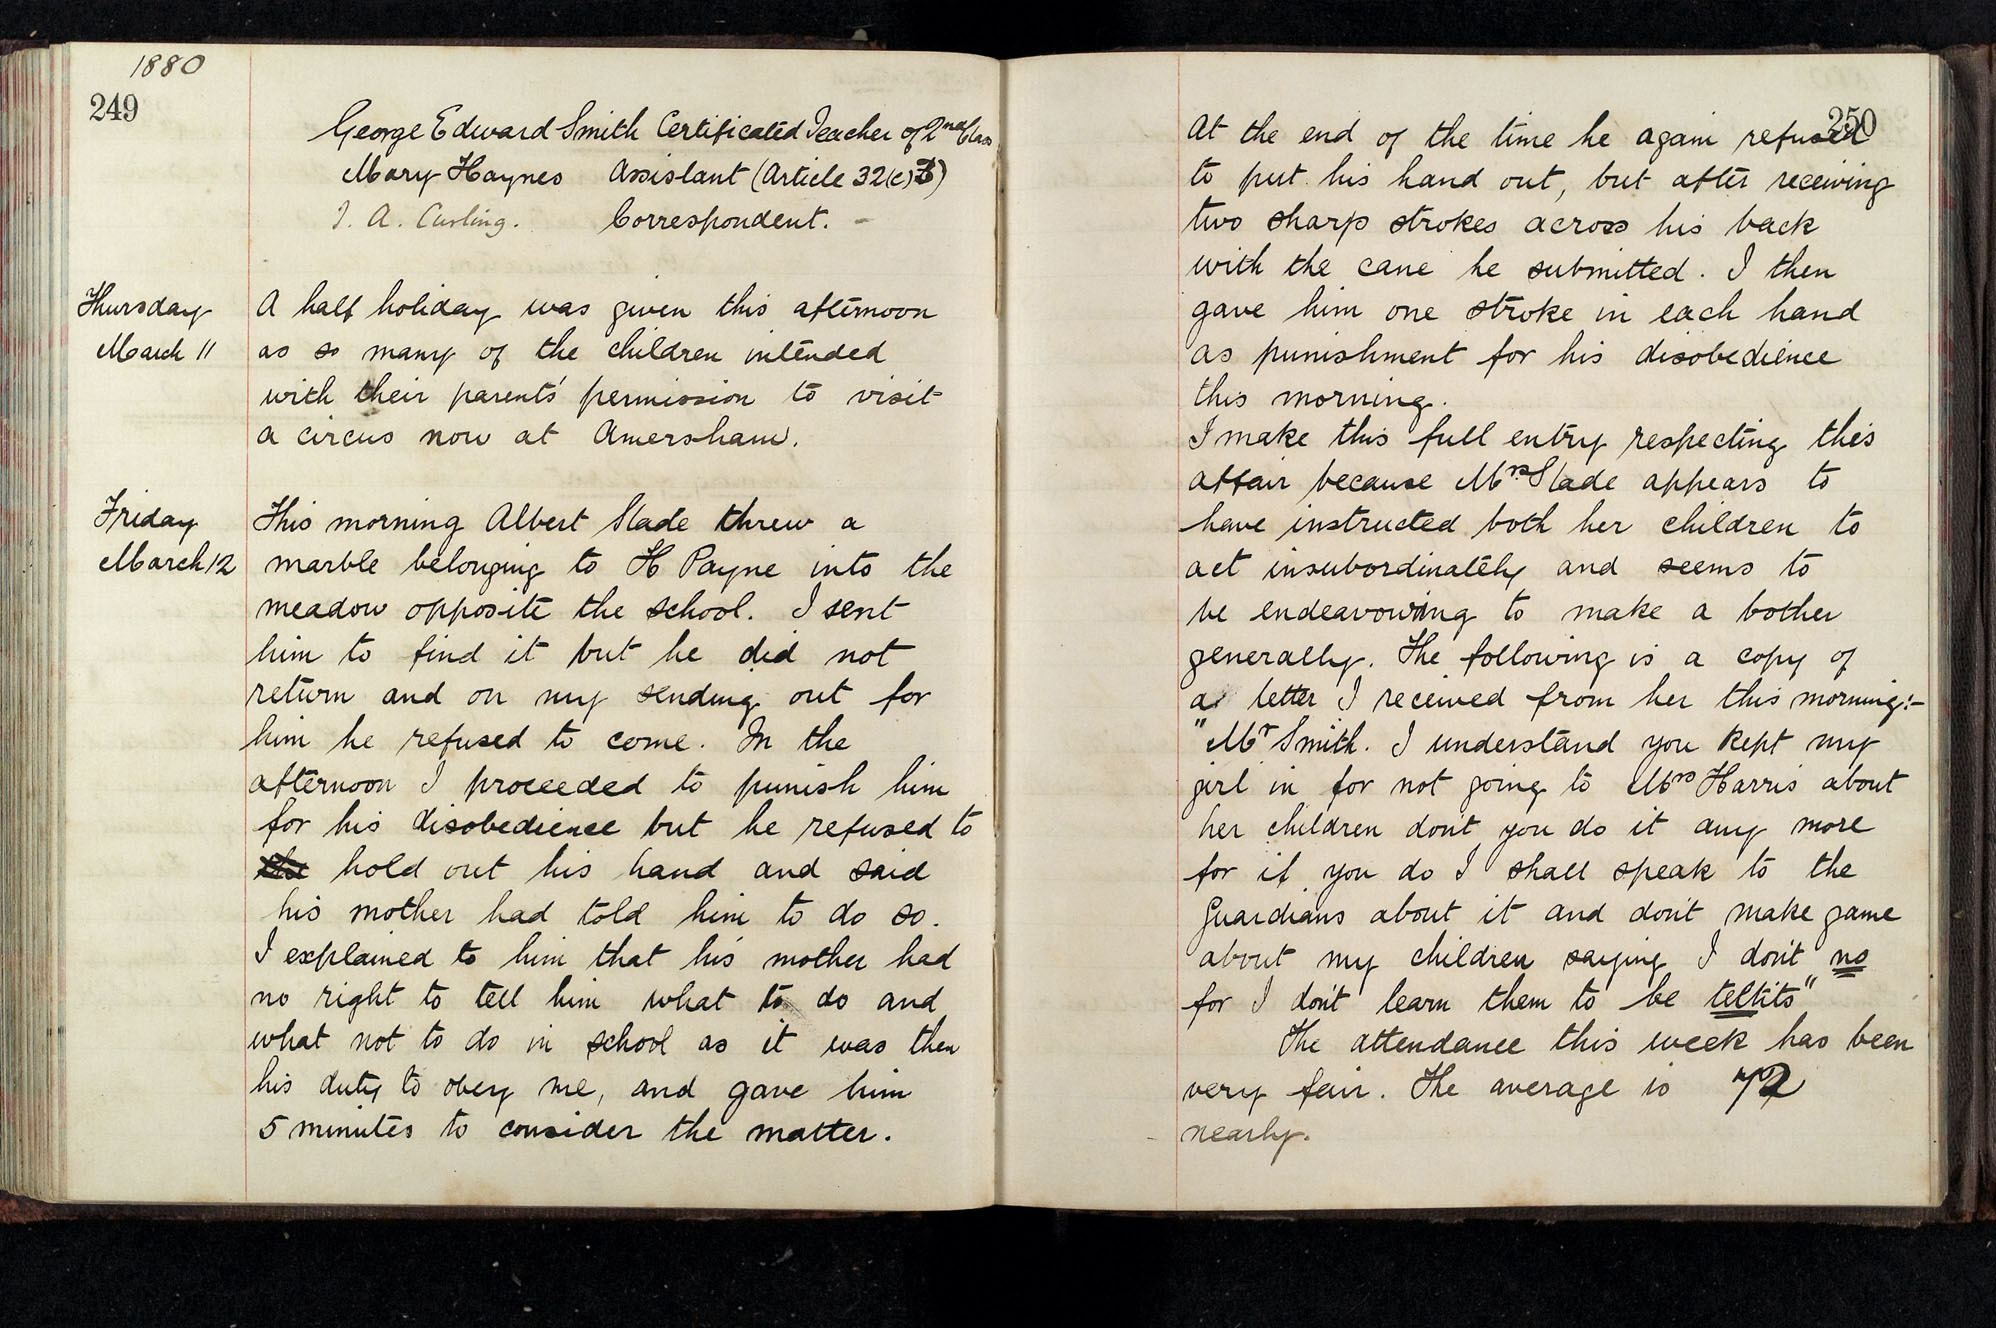 1880
249
George Edward Smith Certificated Teacher of 2nd Class
Mary Haynes Assistant (Article 32(c)3)
J. A. Curling. Correspondent. -
Thursday
March 11
A half holiday was given this afternoon
as so many of the children intended
with their parents' permission to visit
a circus now at Amersham.
Friday
March 12
This morning Albert Slade threw a
marble belonging to H Payne into the
meadow opposite the school. I sent
him to find it but he did not
return and on my sending out for
him he refused to come. In the
afternoon I proceeded to punish him
for his disobedience but he refused to
hold out his hand and said
his mother had told him to do so.
I explained to him that his mother had
no right to tell him what to do and
what not to do in school as it was then
his duty to obey me, and gave him
5 minutes to consider the matter.
250
At the end of the time he again refused
to put his hand out, but after receiving
two sharp strokes across his back
with the cane he submitted. I then
gave him one stroke in each hand
as punishment for his disobedience
this morning.
I make this full entry respecting this
affair because Mrs. Slade appears to
have instructed both her children to
act insubordinately and seems to
be endeavouring to make a bother
generally. The following is a copy of
a letter I received from her this morning:-
"Mr Smith. I understand you kept my
girl in for not going to Mrs Harris about
her children don't you do it any more
for if you do I shall speak to the
Guardians about it and don't make game
about my children saying I don't no
for I don't learn them to be teltits"
The attendance this week has been
very fair. The average is 72
nearly.